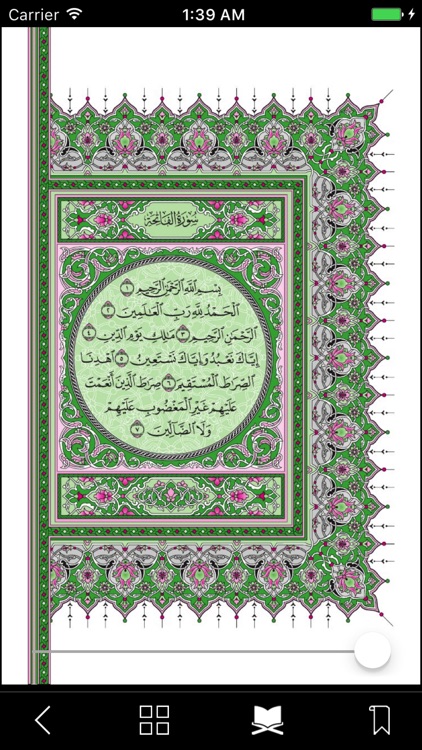 Carrier 1:39 AM
سُورَةُ الْفَاتِحَةِ
بِسْمِ اللَّهِ الرَّحْمَٰنِ الرَّحِيمِ ١
الْحَمْدُ لِلَّهِ رَبِّ الْعَالَمِينَ ٢
الرَّحْمَٰنِ الرَّحِيمِ ٣ مَالِكِ يَوْمِ الدِّينِ ٤
إِيَّاكَ نَعْبُدُ وَإِيَّاكَ نَسْتَعِينُ ٥ اهْدِنَا
الصِّرَاطَ الْمُسْتَقِيمَ ٦ صِرَاطَ الَّذِينَ أَنْعَمْتَ
عَلَيْهِمْ غَيْرِ الْمَغْضُوبِ عَلَيْهِمْ
وَلَا الضَّالِّينَ ٧